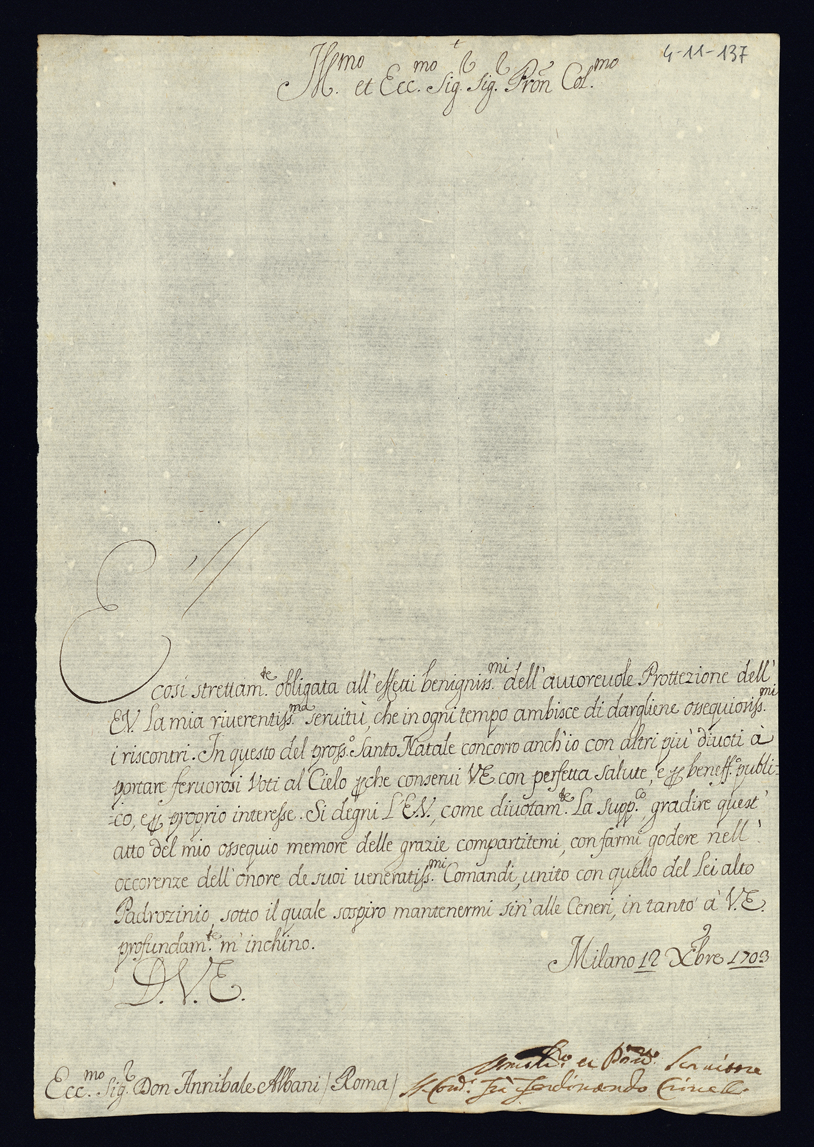 4-11-137
Ill.mo et Ecc.mo Sig.r Sig.r Pron Col.mo
E'
così strettam.te obligata all'effetti benigniss.mi dell'autoreuole Prottezione dell'
E.V. La mia riuerentiss.ma seruitù, che in ogni tempo ambisce di dargliene ossequioriss.mi
i riscontri. In questo del pross.o Santo Natale concorro anch'io con altri più diuoti à
portare feruorosi Voti al Cielo ꝑche conserui V.E. con perfetta salute, e ꝑ beneff.o publi-
=co, e ꝑ proprio interesse. Si degni L'E.V., come diuotam.te La supp.co, gradire quest'
atto del mio ossequio memore delle grazie compartitemi, con farmi godere nell'
occorenze dell'onore de suoi veneratiss.mi Comandi, unito con quello del Lei alto
Padrozinio, sotto il quale sospiro mantenermi sin'alle Ceneri, in tanto à V.E.
profundam.te m'inchino.
Milano 12 Xbre 1703
D.V.E.
Ecc.mo Sig.r Don Annibale Albani / Roma /
Seruitore
Il Con.te Ferdinando